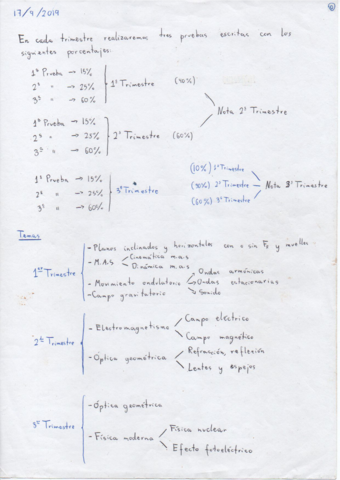 17/9/2019
En cada trimestre realizaremos tres pruebas escritas con los
siguientes porcentajes:
1ª Prueba → 15%
2ª " → 25% 1º Trimestre (40%)
3ª " → 60%
Nota 2º Trimestre
1ª Prueba → 15%
2ª " → 25% 2º Trimestre (60%)
3ª " → 60%
1ª Prueba → 15% (10%) 1º Trimestre
2ª " → 25% 3º Trimestre (30%) 2º Trimestre Nota 3º Trimestre
3ª " → 60% (60%) 3º Trimestre
Temas
1er Trimestre
- Planos inclinados y horizontales con o sin FR y muelles
- M.A.S
Cinemática m.a.s
Dinámica m.a.s
- Movimiento ondulatorio
Ondas armónicas
Ondas estacionarias
Sonido
- Campo gravitatorio
2º Trimestre
- Electromagnetismo
Campo eléctrico
Campo magnético
- Óptica geométrica
Refracción, reflexión
Lentes y espejos
3er Trimestre
- Óptica geométrica
- Física moderna
Física nuclear
Efecto fotoeléctrico